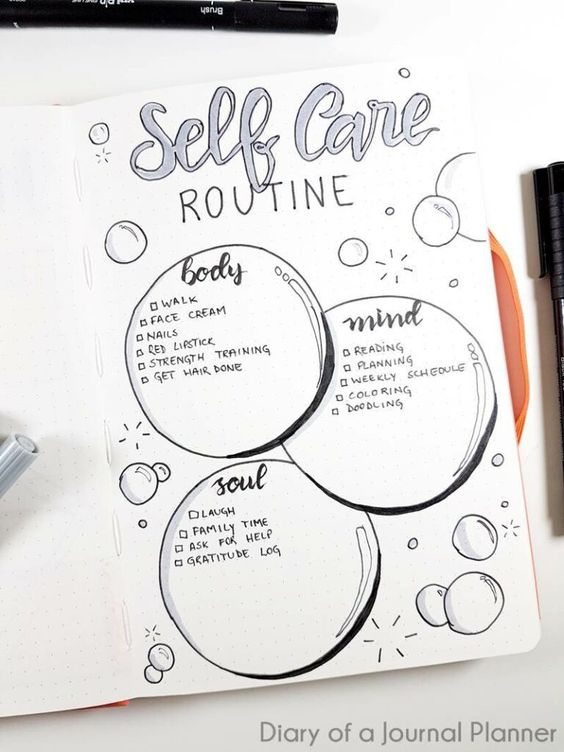 Brush
Self Care
ROUTINE
body
WALK
FACE CREAM
NAILS
RED LIPSTICK
STRENGTH TRAINING
GET HAIR DONE
mind
READING
PLANNING
WEEKLY SCHEDULE
COLORING
DOODLING
soul
LAUGH
FAMILY TIME
ASK FOR HELP
GRATITUDE LOG
Diary of a Journal Planner